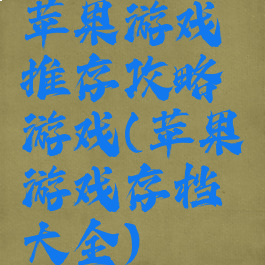 苹果游戏
推存攻略
游戏(苹果
游戏存档
大全)